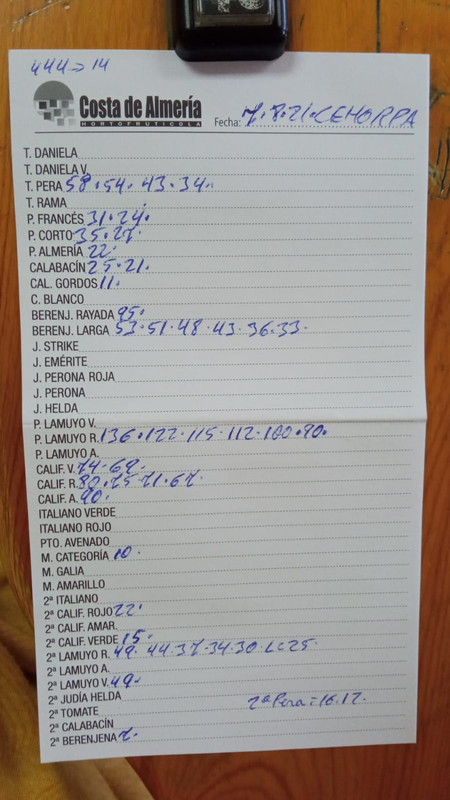 444 → 14
Costa de Almería
HORTOFRUTICOLA
Fecha: 7.8.21. CEHORPA
T. DANIELA
T. DANIELA V.
T. PERA 58. 54. 43. 34.
T. RAMA
P. FRANCÉS 31. 24.
P. CORTO 35. 27.
P. ALMERÍA 22.
CALABACÍN 25. 21.
CAL. GORDOS 11.
C. BLANCO
BERENJ. RAYADA 95.
BERENJ. LARGA 53. 51. 48. 43. 36. 33.
J. STRIKE
J. EMÉRITE
J. PERONA ROJA
J. PERONA
J. HELDA
P. LAMUYO V.
P. LAMUYO R. 136. 122. 115. 112. 100. 90.
P. LAMUYO A.
CALIF. V. 74. 69.
CALIF. R. 80. 75. 71. 67.
CALIF. A. 90.
ITALIANO VERDE
ITALIANO ROJO
PTO. AVENADO
M. CATEGORÍA 10.
M. GALIA
M. AMARILLO
2ª ITALIANO
2ª CALIF. ROJO 22.
2ª CALIF. AMAR.
2ª CALIF. VERDE 15.
2ª LAMUYO R. 49. 44. 37. 34. 30. 25.
2ª LAMUYO A.
2ª LAMUYO V. 49.
2ª JUDÍA HELDA
2ª TOMATE 2ª Pera = 16. 12.
2ª CALABACÍN
2ª BERENJENA 7.